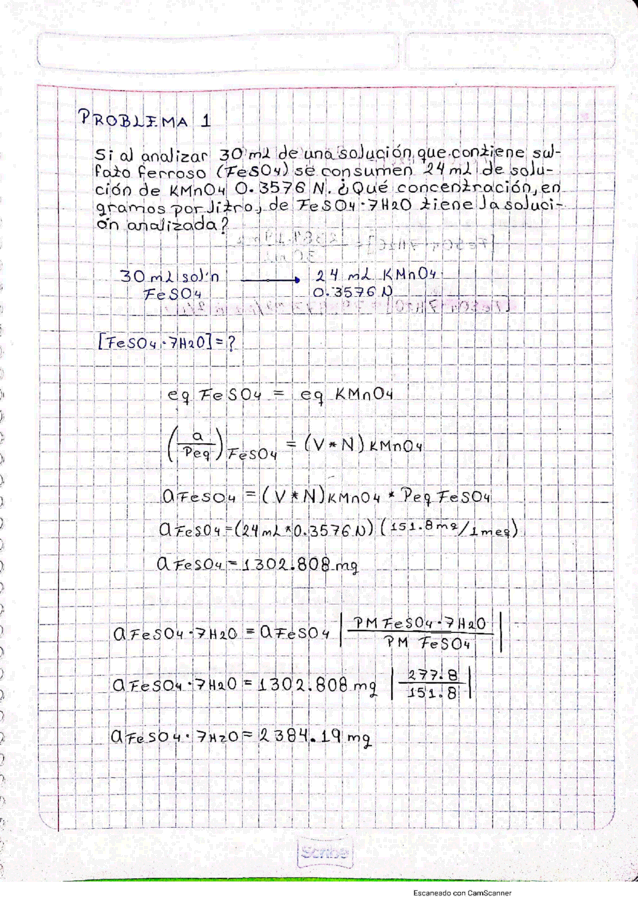 PROBLEMA 1
Si al analizar 30 ml de una solución que contiene sul-
fato ferroso (FeSO4) se consumen 24 ml de solu-
ción de KMnO4 0.3576 N. ¿Qué concentración, en
gramos por litro, de FeSO4·7H2O tiene la soluci-
ón analizada?
30 ml sol'n → 24 ml KMnO4
FeSO4 0.3576 N
[FeSO4·7H2O] = ?
eq FeSO4 = eq KMnO4
(a/Peq)FeSO4 = (V*N)KMnO4
aFeSO4 = (V*N)KMnO4 * Peq FeSO4
aFeSO4 = (24mL*0.3576N) (151.8mg/1meq)
aFeSO4 = 1302.808 mg
aFeSO4·7H2O = aFeSO4 | PM FeSO4·7H2O / PM FeSO4 |
aFeSO4·7H2O = 1302.808 mg | 277.8 / 151.8 |
aFeSO4·7H2O = 2384.19 mg
Scribe
Escaneado con CamScanner